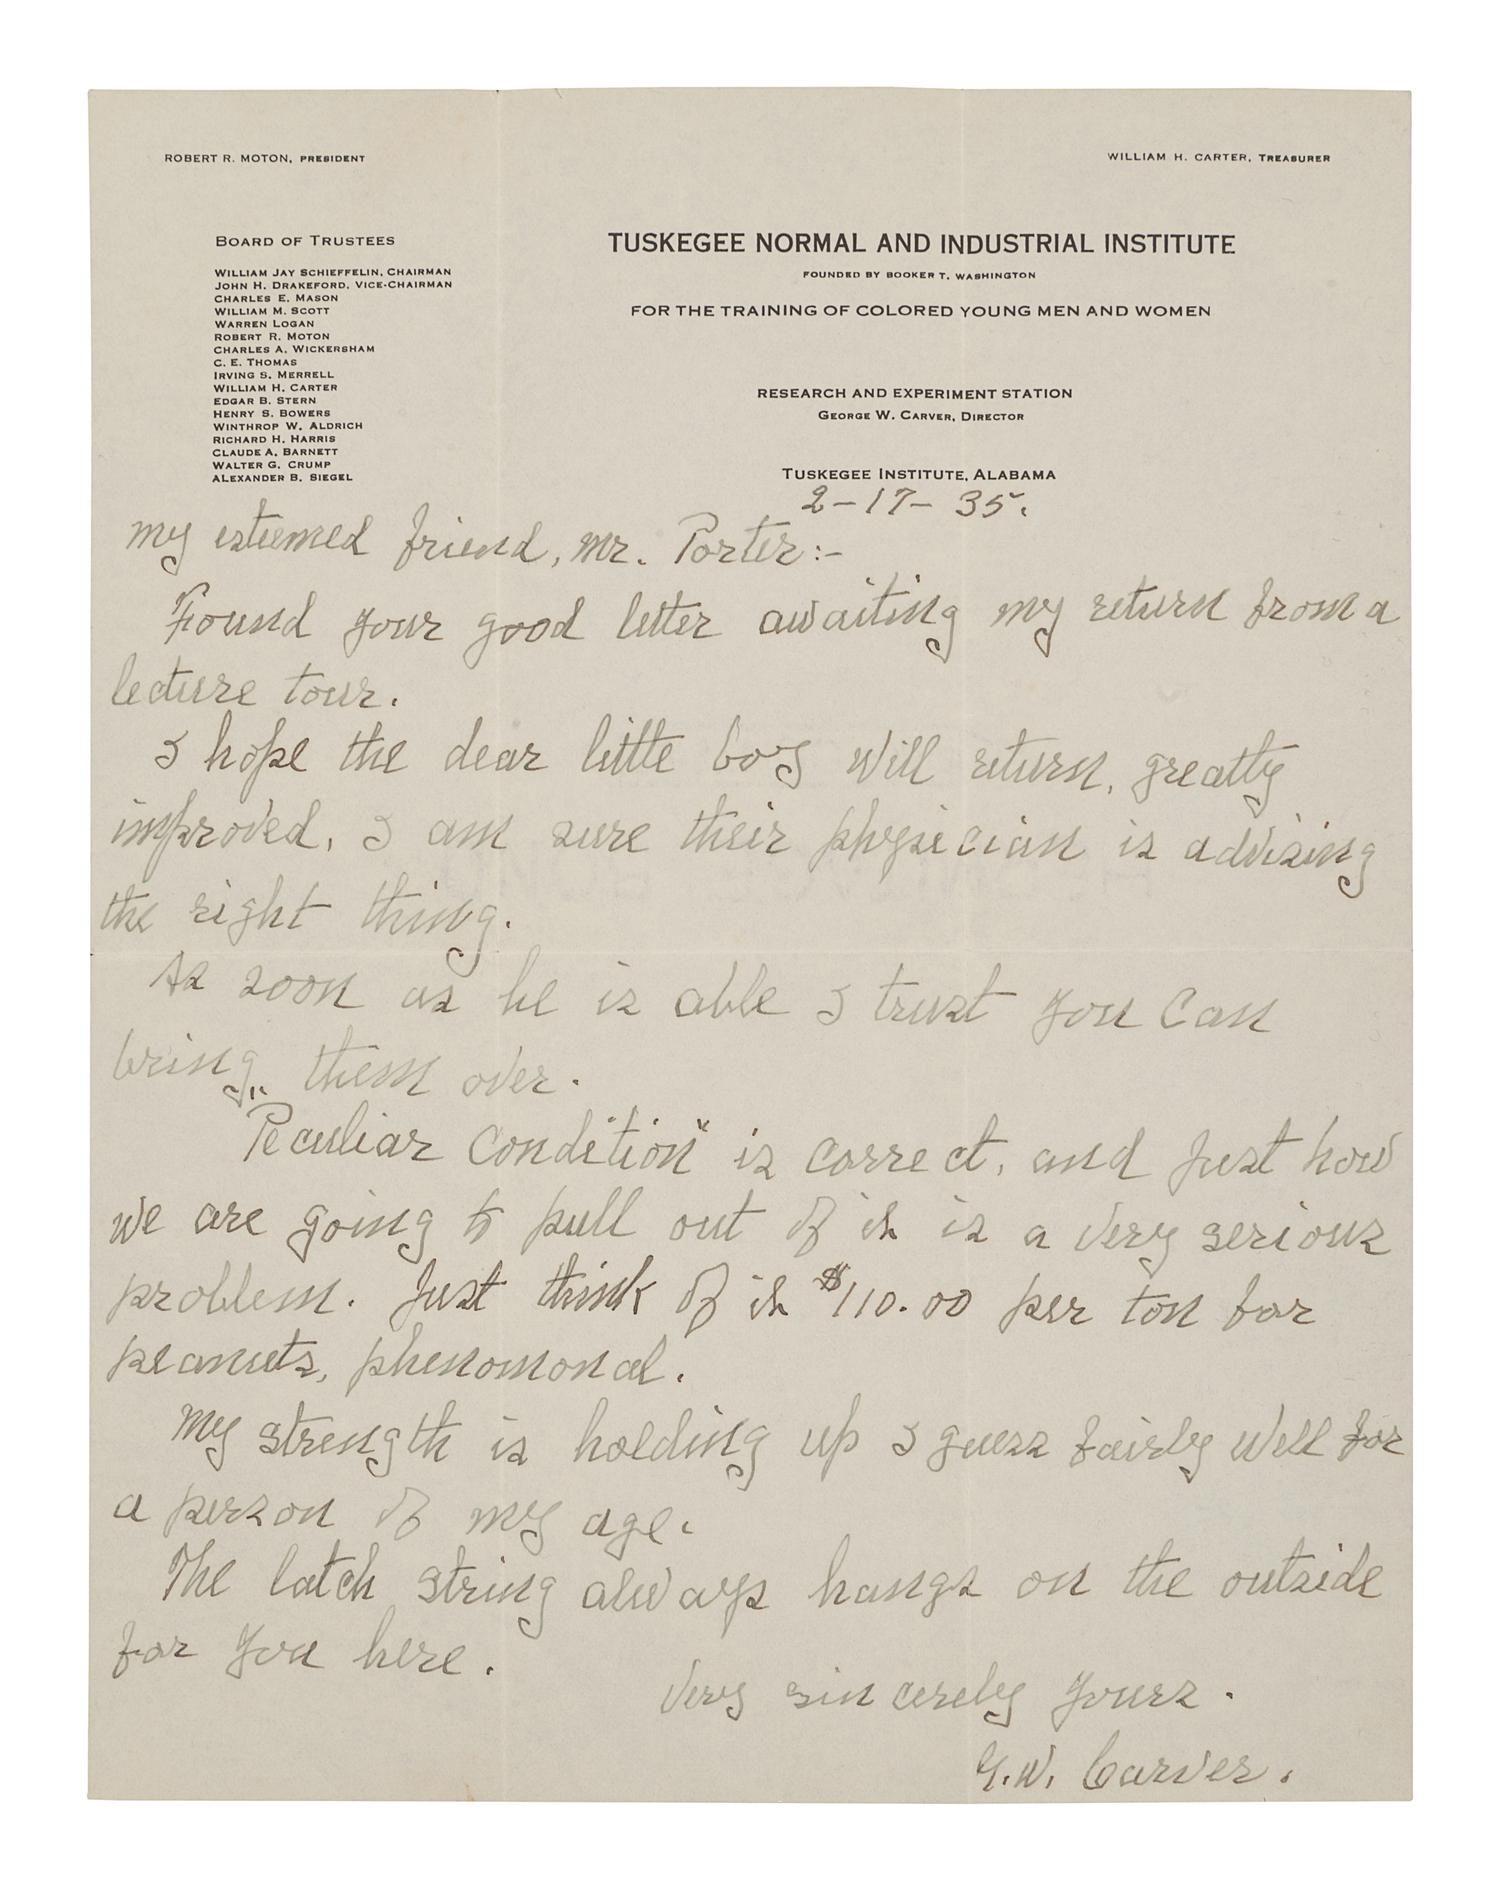 ROBERT R. MOTON, PRESIDENT
WILLIAM H. CARTER, TREASURER
BOARD OF TRUSTEES
WILLIAM JAY SCHIEFFELIN, CHAIRMAN
JOHN H. DRAKEFORD, VICE-CHAIRMAN
CHARLES E. MASON
WILLIAM M. SCOTT
WARREN LOGAN
ROBERT R. MOTON
CHARLES A. WICKERSHAM
C. E. THOMAS
IRVING S. MERRELL
WILLIAM H. CARTER
EDGAR B. STERN
HENRY S. BOWERS
WINTHROP W. ALDRICH
RICHARD H. HARRIS
CLAUDE A. BARNETT
WALTER G. CRUMP
ALEXANDER B. SIEGEL
TUSKEGEE NORMAL AND INDUSTRIAL INSTITUTE
FOUNDED BY BOOKER T. WASHINGTON
FOR THE TRAINING OF COLORED YOUNG MEN AND WOMEN
RESEARCH AND EXPERIMENT STATION
GEORGE W. CARVER, DIRECTOR
TUSKEGEE INSTITUTE, ALABAMA
2-17-35.
My esteemed friend, Mr. Porter:-
Found your good letter awaiting my return from a
lecture tour.
I hope the dear little boy will return, greatly
improved, I am sure their physician is advising
the right thing.
As soon as he is able I trust you can
bring them over.
"Peculiar Condition" is correct, and just how
we are going to pull out of it is a very serious
problem. Just think of it $110.00 per ton for
peanuts, phenomonal.
My strength is holding up I guess fairly well for
a person of my age.
The latch string always hangs on the outside
for you here.
Very sincerely yours.
G.W. Carver.